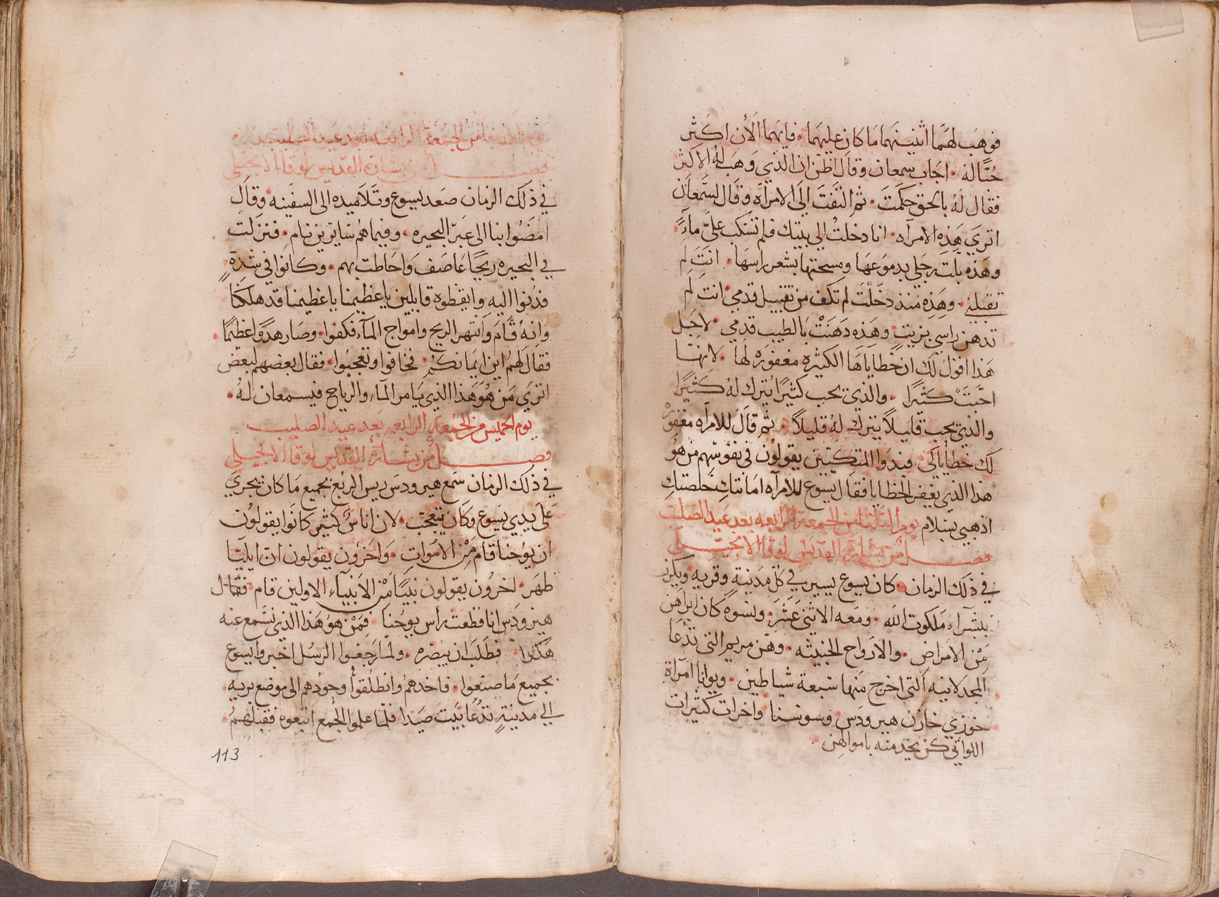 فوهب لهما اثنينهما ما كان عليهما • فايهما الان اكثر
حبًا له • اجاب سمعان وقال اظن ان الذي وهب له الاكثر
فقال له بالحق حكمت • ثم التفت الى الامراة وقال لسمعان
اتري هذه الامراه • انا دخلت الي بيتك فلم تسكب علي ماءً
وهذه بلت رجلي بدموعها ومسحتها بشعر راسها • انت لم
تقبلني • وهذه منذ دخلت لم تكف من تقبيل قدمي • انت لم
تدهن راسي بزيت • وهذه دهنت بالطيب قدمي • لاجل
هذا اقول لك ان خطاياها الكثيره مغفوره لها • لانها
احبت كثيرًا • والذي يحب كثيرًا يترك له كثيرًا
والذي يحب قليلاً يترك له قليلاً • ثم قال للامراه مغفوره
لك خطاياكي • فبدوا المتكيين يقولون في نفوسهم من هو
هذا الذي يغفر الخطايا فقال يسوع للامراه امانتك خلصتك
اذهبي بسلام يوم الثلثا من الجمعة الرابعه بعد عيد الصليب
فصل من بشارة القديس لوقا الانجيلي
في ذلك الزمان • كان يسوع يسير في كل مدينة وقريه ويكرز
يبشر ملكوت الله • ومعه الاثني عشر • ونسوه كان ابراهن
من الامراض • والارواح الخبيثه • وهن مريم التي تدعا
المجدلانيه التي اخرج منها سبعة شياطين • ويوانا امرأة
خوزي خازن هيرودس • وسوسنا واخرات كثيرات
اللواتي كن يخدمنه باموالهن •
من الجمعة الرابعه بعد عيد الصليب
فصل من بشارة القديس لوقا الانجيلي
في ذلك الزمان صعد يسوع وتلاميذه الى السفينه • وقال
امضوا بنا الى عبر البحيره • وفيما هم سايرين نام • فنزلت
في البحيره ريحًا عاصف واحاطت بهم • وكانوا في شدةٍ
فدنوا اليه وايقظوه قايلين يا عظيمنا يا عظيمنا قد هلكنا
وانه قام وانتهر الريح وامواج الماء فكفوا • وصار هدوًا عظيمًا •
فقال لهم اين ايمانكم • فخافوا وتعجبوا • فقال بعضهم لبعض
اتري من هو هذا الذي يامر الماء والرياح فيسمعان له •
يوم الخميس من الجمعة الرابعه بعد عيد الصليب
فصل من بشارة القديس لوقا الانجيلي
في ذلك الزمان سمع هيرودس ريس الربع بجميع ما كان يجري
على يدي يسوع وكان يتعجب • لان اناسً كثير كانوا يقولون
ان يوحنا قام من الاموات • واخرون يقولون ان ايليا
ظهر • اخرون يقولون نبيًا من الانبياء الاولين قام • فقال
هيرودس انا قطعت راس يوحنا • فمن هو هذا الذي نسمع عنه
هكذا • فطلب ان يبصره • ولما رجعوا الرسل اخبروا يسوع
بجميع ما صنعوا • فاخدهم وانطلقوا وحدهم الى موضع بريه •
الي مدينةٍ تدعا بيت صيدا فلما علموا الجمع اتبعوه فقبلهم •
113